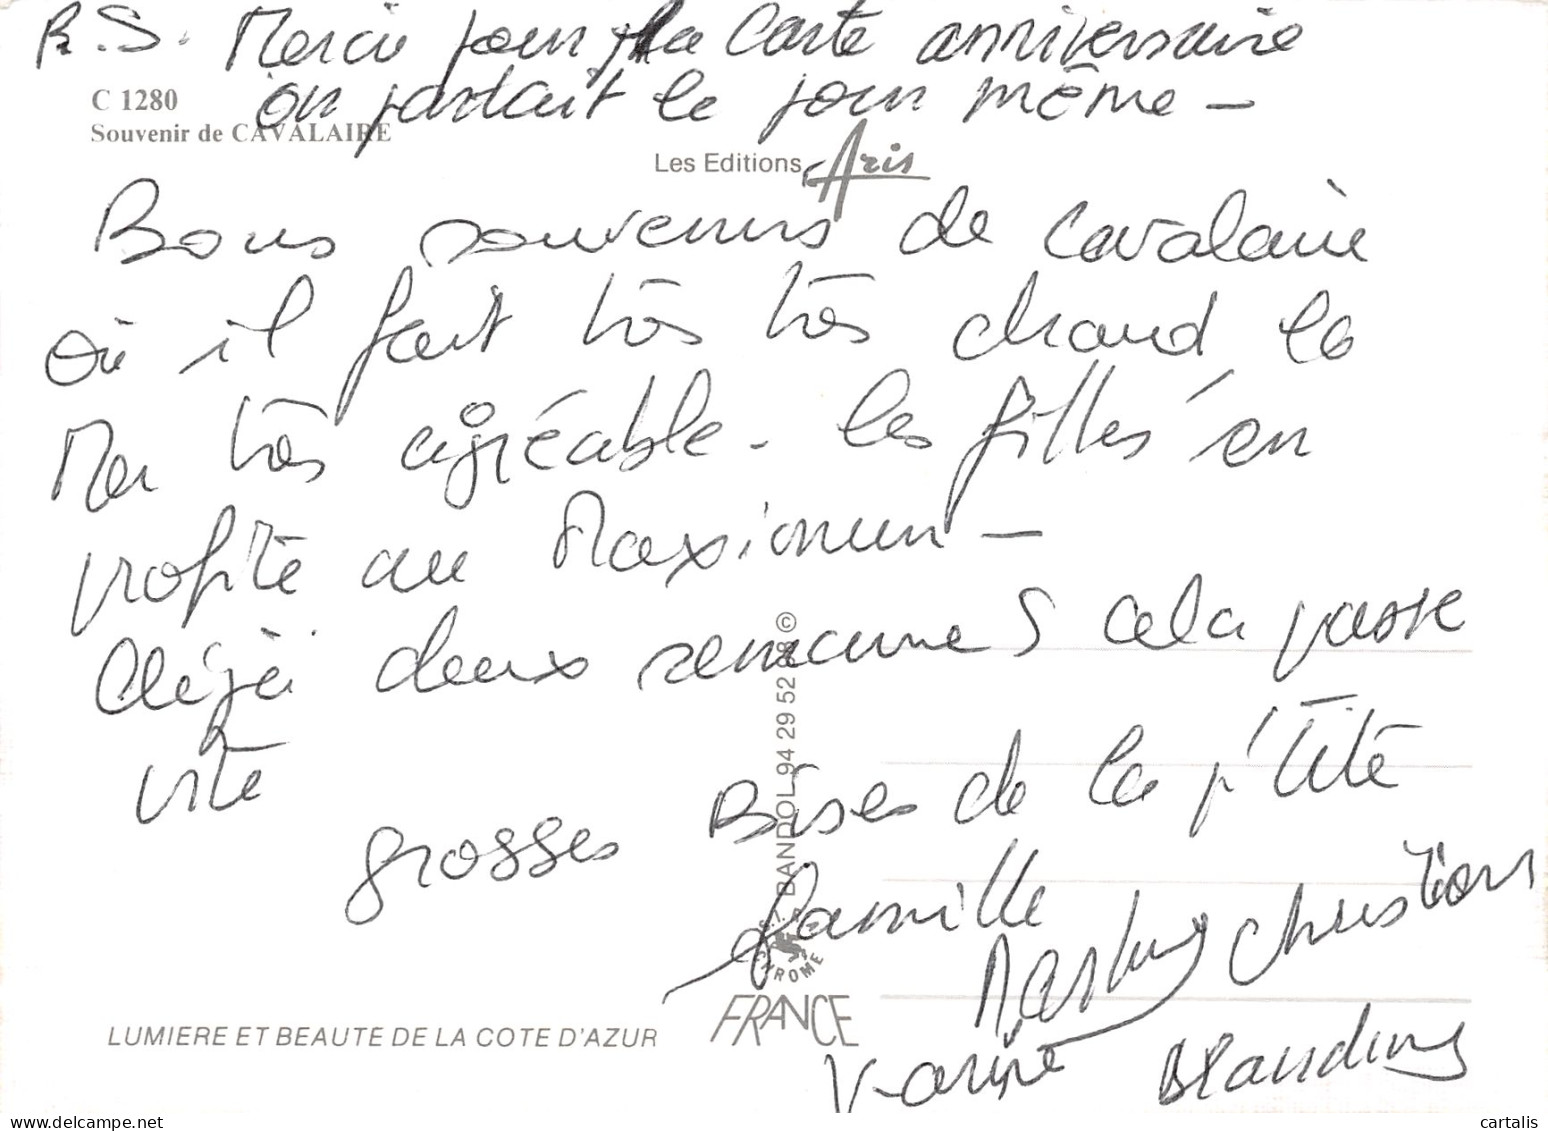 P.S. Merci pour la Carte anniversaire
on partait le jour même -
C 1280
Souvenir de CAVALAIRE
Les Editions Aris
Bons souvenirs de Cavalaire
où il fait très très chaud la
Mer très agréable - les filles en
profite au Maximum -
Déjà deux semaines cela passe
vite
grosses Bises de la p'tite
famille
Christian
Karine Blandine
BANDOL 94 29 52
©
FRANCE
LUMIERE ET BEAUTE DE LA COTE D'AZUR
cartalis
delcampe.net